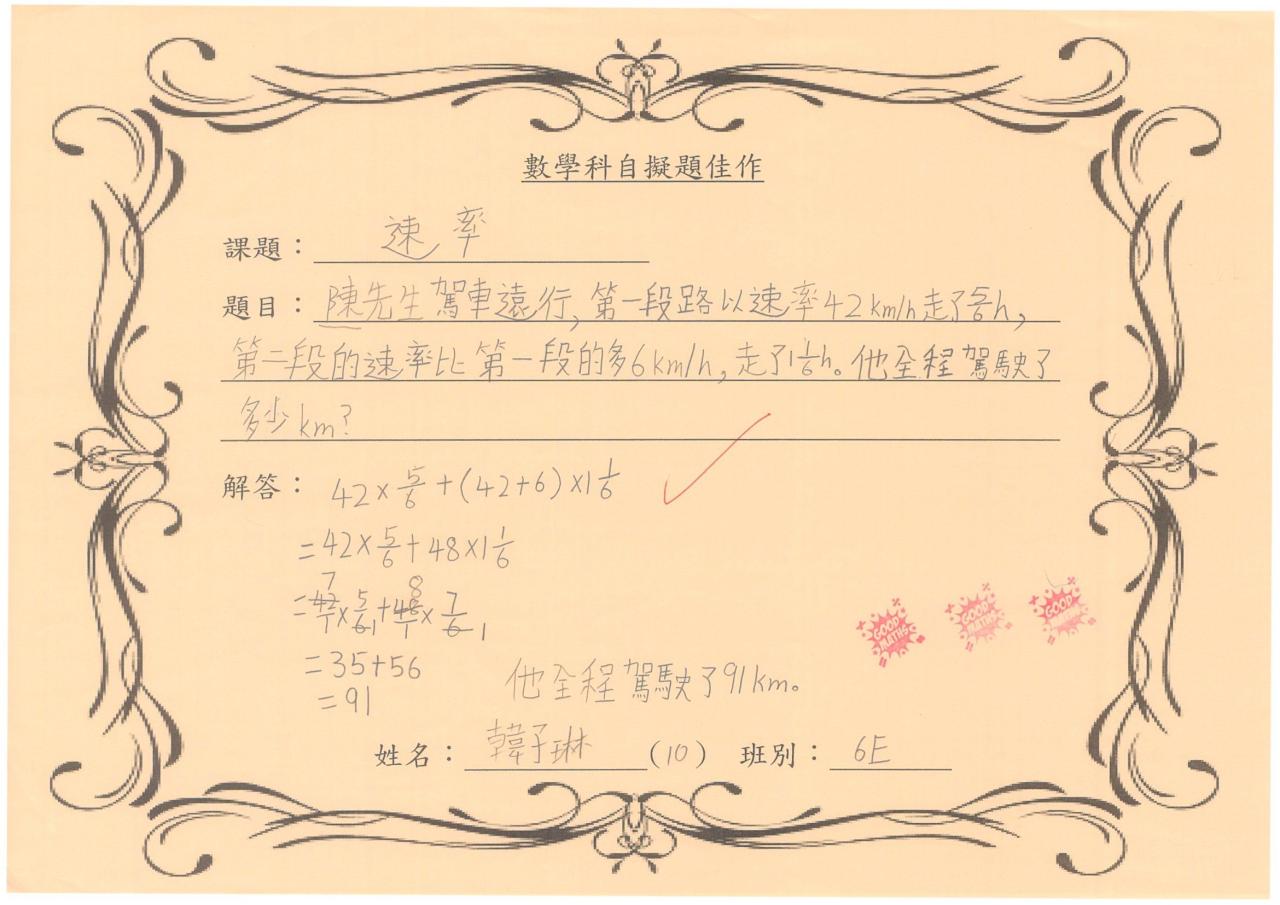 數學科自擬題佳作
課題：速率
題目：陳先生駕車遠行，第一段路以速率42km/h走了5/6h，
第二段的速率比第一段的多6km/h，走了1 1/6h。他全程駕駛了
多少km?
解答：42×5/6+(42+6)×1 1/6
=42×5/6+48×1 1/6
7 8
=42/1×5/6 1+48/1×7/6 1
=35+56
=91
他全程駕駛了91km。
GOOD MATHS
GOOD MATHS
GOOD MATHS
姓名：韓子琳(10) 班別：6E